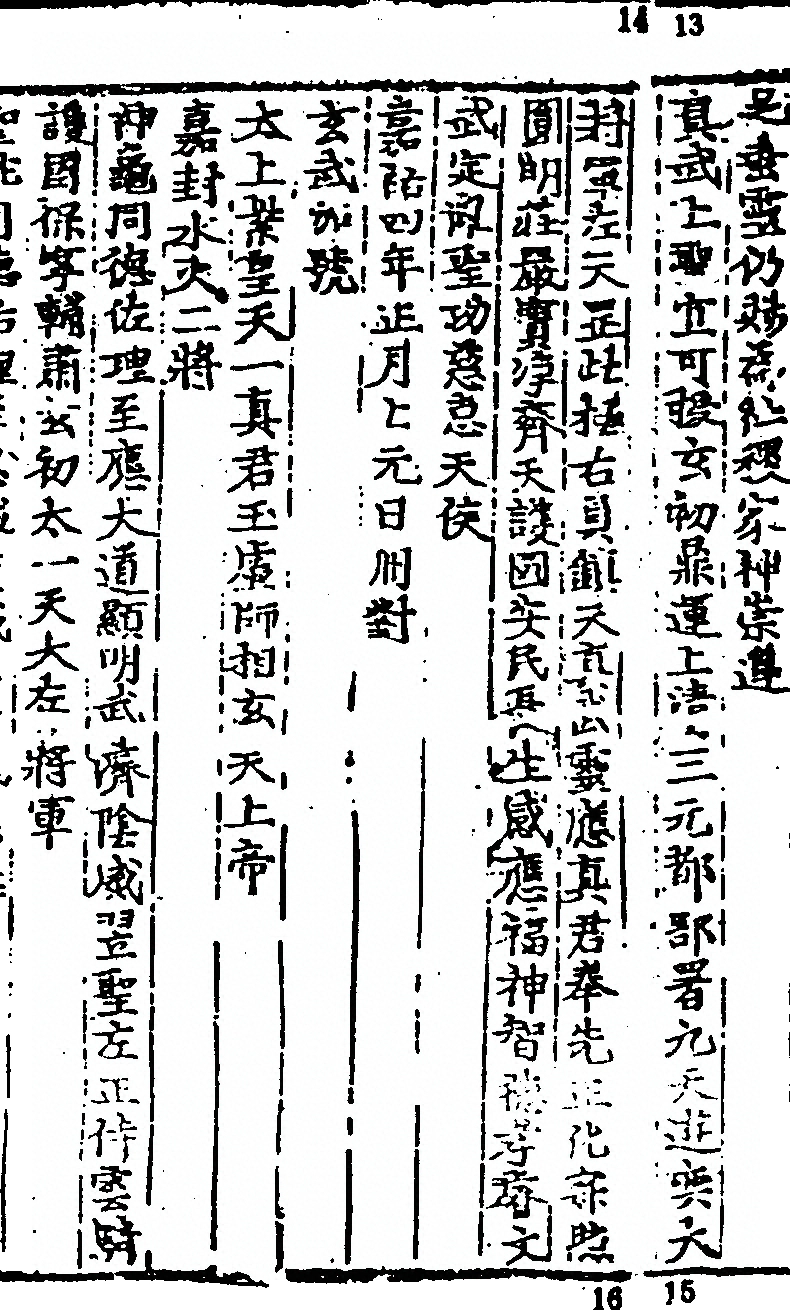 14 13
足垂靈仍賜為社稷家神崇遵
真武上聖宜可授玄初鼎運上清三元都部署九天遊奕大
將軍左天罡北極右員鎮天真武靈應真君奉先正化寂照
圓明莊嚴寶淨齊天護國安民長生感應福神智德孝睿文
武定亂聖功慈惠天侯
嘉祐四年正月上元日冊對
玄武加號
太上紫皇天一真君玉虛師相玄天上帝
嘉封水火二將
神龜同德佐理至應大道顯明武濟陰威翌聖左正侍雲騎
護國保寧輔肅玄初太一天大左將軍
16 15